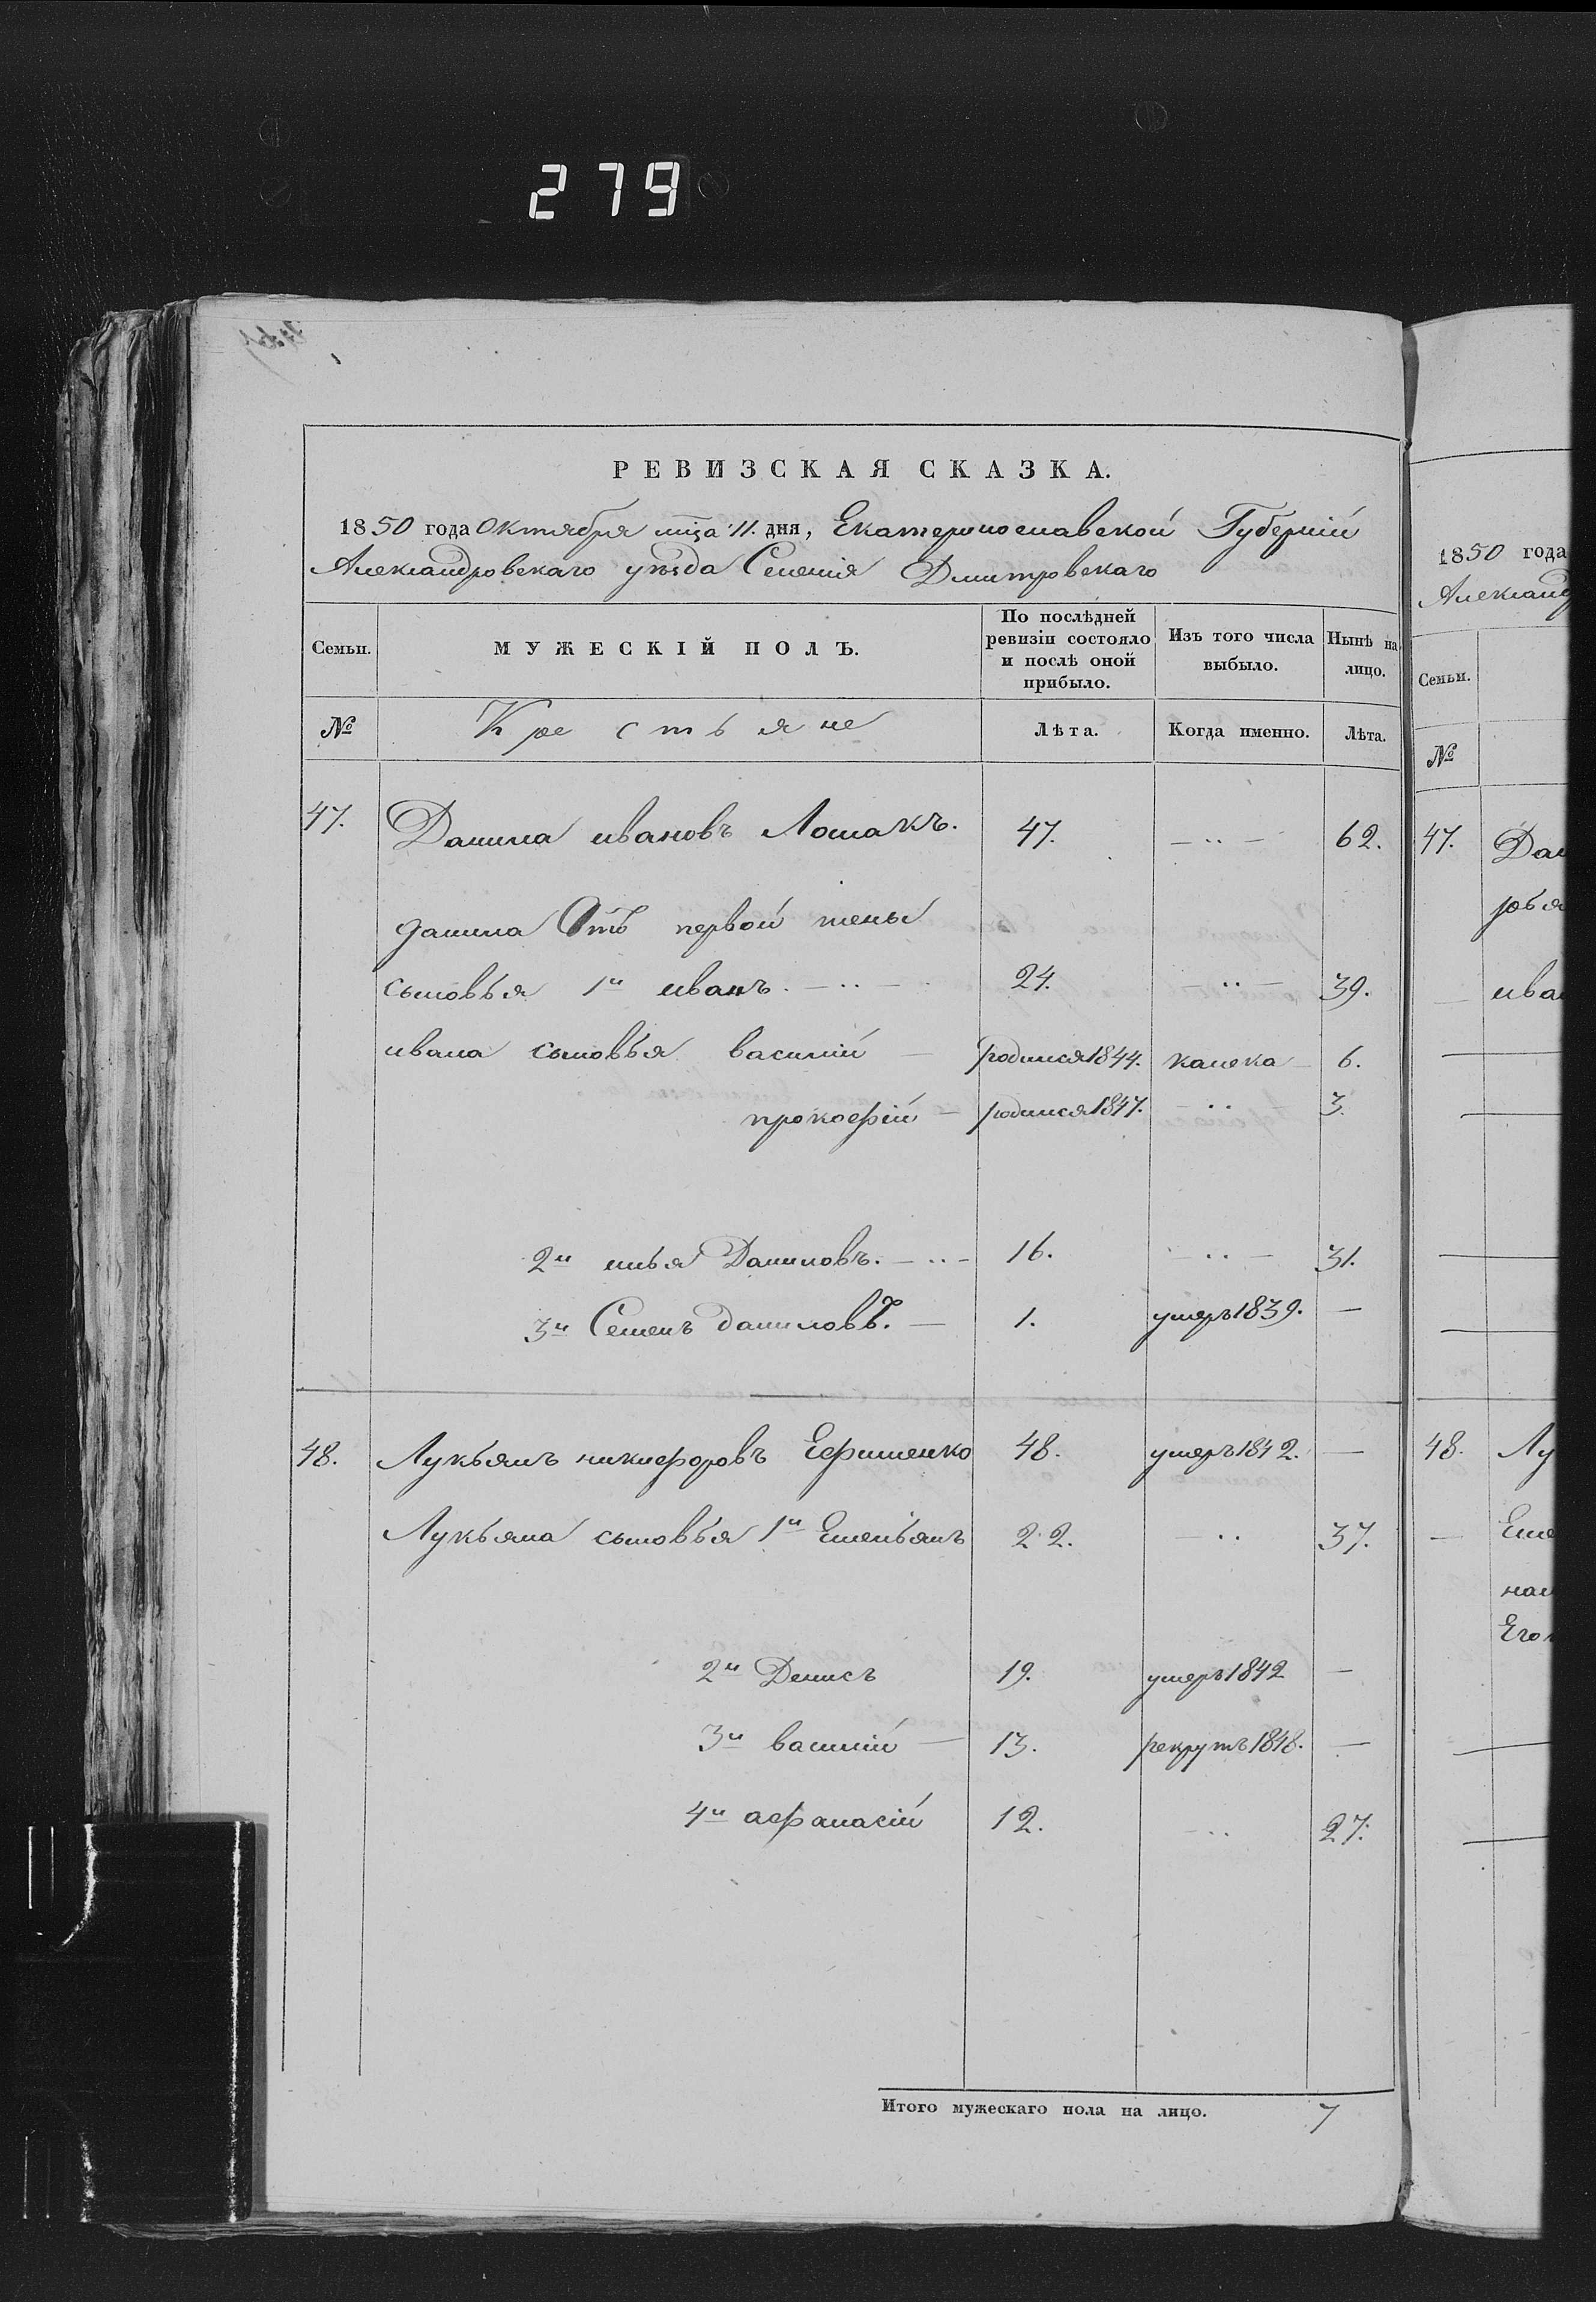 279
РЕВИЗСКАЯ СКАЗКА.
1850 года Октября мца 11. дня, Екатеринославской Губерніи
Александровскаго уѣзда Селенія Дмитровскаго
Семьи. МУЖЕСКІЙ ПОЛЪ. По послѣдней ревизіи состояло и послѣ оной прибыло. Изъ того числа выбыло. Нынѣ на лицо.
№ Крестьяне Лѣта. Когда именно. Лѣта.
47. Данила ивановъ Лошакъ. 47. — ·· — 62.
Данила Отъ первой жены
сыновья 1й иванъ. — ·· — 24. — ·· — 39.
ивана сыновья василій — родился 1844. калека — 6.
прокофій — родился 1847. — ·· 3.
2й илья Даниловъ. — ·· — 16. — ·· — 31.
3й Семенъ даниловъ. — 1. умеръ 1839. —
48. Лукьянъ никифоровъ Ефименко 48. умеръ 1842. —
Лукьяна сыновья 1й Емельянъ 22. ·· 37.
2й Денисъ 19. умеръ 1842 —
3й василій — 13. рекрутъ 1848. —
4й афанасій 12. — ·· 27.
Итого мужескаго пола на лицо. 7
1850 года
Александ
Семьи.
№
47. Дан
рья
— ива
48. Лу
— Еме
Его